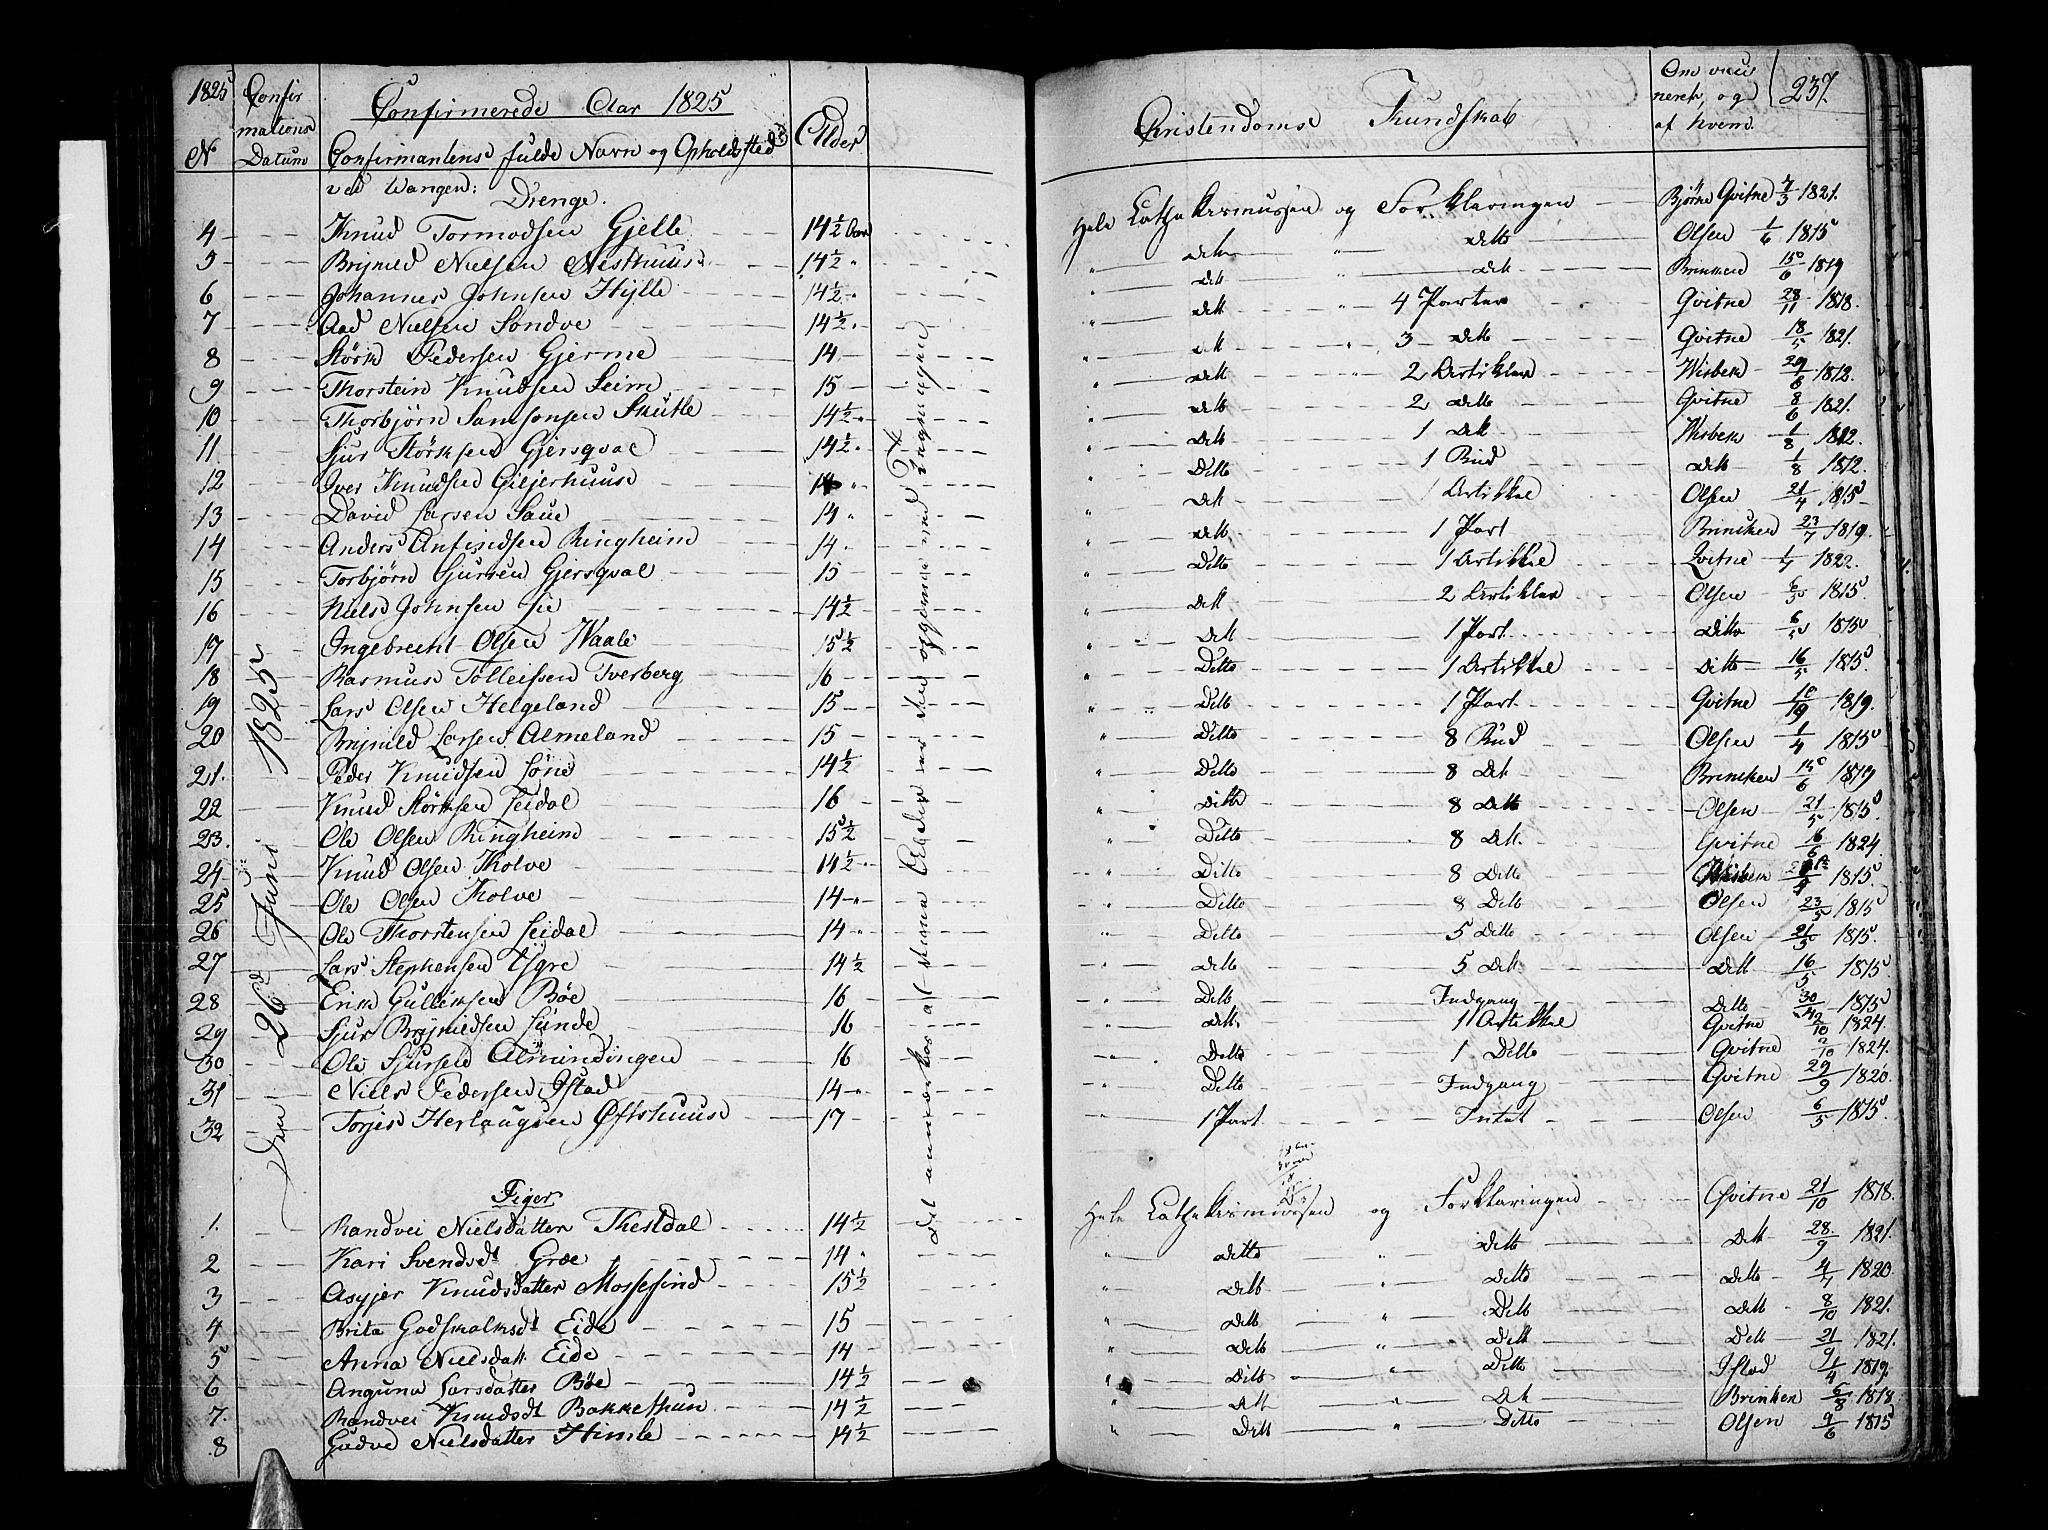 1825 Confir Confirmerede Aar 1825 Christendoms Kundskab Om vacci 237
mations Alder nereth, og
N Datum Confirmantens fulde Navn og Opholdsted af hvem.
ved Wangen: Drenge.
4 Knud Tormodsen Gjelle 14½ Aar Hele Cathekismussen og Forklaringen Bjørne Qvitne 7/3 1821.
5 Brynild Nielsen Nesthuus 14½ Ditto Ditto Olsen 1/6 1815
6 Johannes Johnsen Hylle 14½ Ditt Ditt Brinken 15/6 1819
7 Aad Nielsen Sondve 14½ Ditt 4 Parter Qvitne 28/11 1818.
8 Størk Pedersen Gjerme 14 Ditt 3 Ditt Qvitne 18/5 1821.
9 Thorstein Knudsen Seim 15 Ditt 2 Artikler Wisbek 29/8 1812.
10 Thorbjørn Samsonsen Skutle 14½ Ditt 2 Ditto Qvitne 8/6 1821.
11 Sjur Størksen Gjersqval 14½ Ditt 1 Ditt Wisbek 1/8 1812.
12 Iver Knudsen Giljerhuus 14 Ditto 1 Bud Ditt 1/8 1812.
13 David Larsen Saue 14 Ditt 1 Artikkel Olsen 21/4 1815
14 Anders Anfindsen Ringheim 14 Ditt 1 Part Brinken 23/7 1819.
15 Torbjørn Sjursen Gjersqval 15 Ditto 1 Artikkel Qvitne 1822.
16 Niels Johnsen 14½ Ditt 2 Artikler Olsen 6/5 1815.
17 Ingebrecht Olsen Waale 15½ Ditt 1 Part Ditto 6/5 1815
18 Rasmus Tolleifsen Tverberg 16 Ditto 1 Artikkel Ditto 16/5 1815
19 Lars Olsen Helgeland 15 Ditto 1 Part Qvitne 1819.
20 Brynild Larsen Almeland 15 Ditto 8 Bud Olsen 1/4 1815
21. Peder Knudsen Løne 14½ Ditto 8 Ditt Brinken 15/6 1819
22 Knud Størksen Leidal 16 Ditto 8 Ditto Olsen 21/5 1815
23. Ole Olsen Ringheim 15½ Ditto 8 Ditt. Qvitne 16/6 1824
24. Knud Olsen Kolve 14½ Ditto 8 Ditto 1815.
25 Ole Olsen Kolve 14 Ditto 8 Ditto Olsen 23/5 1815
26 Ole Thorstensen Leidal 14 Ditto 5 Ditto Olsen 21/5 1815.
27 Lars Stephensen Ygre 14½ Ditto 5 Ditt. Ditt 16/5 1815
28 Erik Gulleiksen Bøe 16 Ditto Indgang Ditto 30/ 1815
29 Sjur Brynildsen Lunde 16 Ditt. 1 Artikkel Qvitne /10 1824.
30 Ole Sjursen Almindingen 16 Ditto 1 Ditto Qvitne /10 1824.
31 Niels Pedersen Istad 14 Ditto Indgang Qvitne 29/9 1820.
32 Torjes Herlaugsen Øfsthuus 17 1 Part Intet Olsen 6/5 1815.
Den 26de Juni 1825
Det anmærkes at denne Alder er den opgivne ved Tegningen
Piger
1. Randvei Nielsdatter Thestdal 14½ Hele Cathekismussen og Forklaringen Qvitne 21/10 1818.
2 Kari Svendsdt Græe 14 Ditto Ditto Ditt 28/9 1821.
3 Asgjer Knudsdatter Mossefind 15½ Ditto Ditto Ditto 1820
4 Brita Godskalksdt Eide 15 Ditto Ditto Ditt 8/10 1821.
5 Anna Nielsdatt Eide 14 Ditto Ditt Ditt 21/9 1821.
6 Anguna Larsdatter Bøe 14½ Ditto Ditto Istad 1/4 1819.
7. Randvei Knudsdt Bakkethun 14½ Ditt Ditt Brinken 6/8 1818
8 Gudve Nielsdatter Himle 14½ Ditt Ditto Olsen 9/6 1815